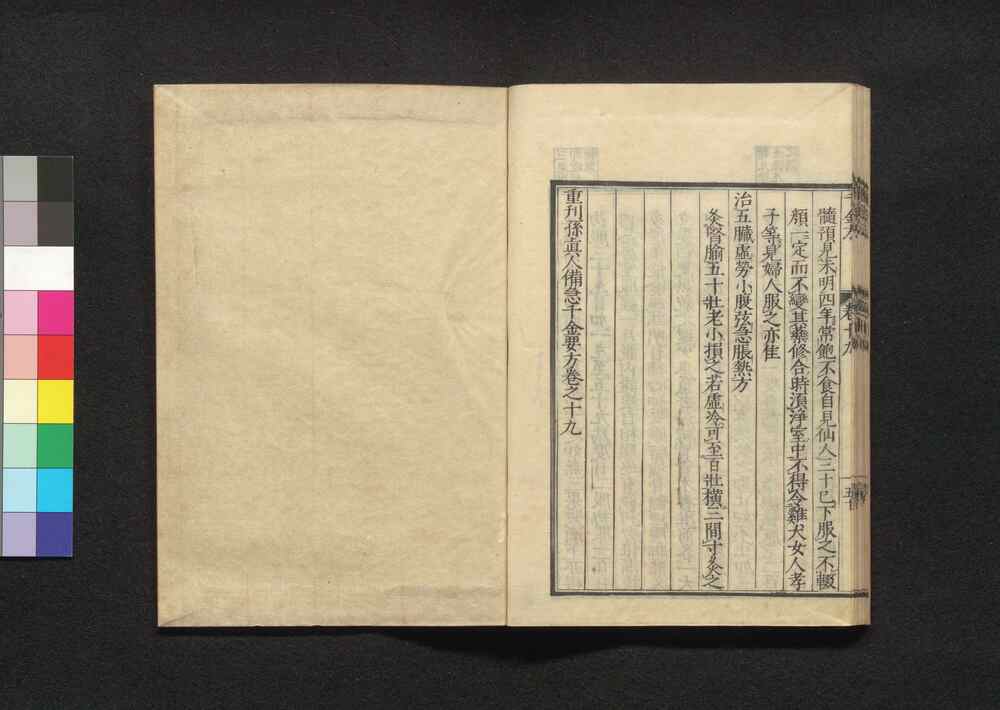 髓預見未明四年常飽不食自見仙人三十已下服之不輟
顔一定而不變其藥修合時須淨室中不得令雞犬女人孝
子等見婦人服之亦佳
治五臟虛勞小腹弦急脹熱方
灸腎腧五十壯老小損之若虛冷可至百壯橫三間寸灸之
重刊孫真人備急千金要方卷之十九
千金方
卷十九